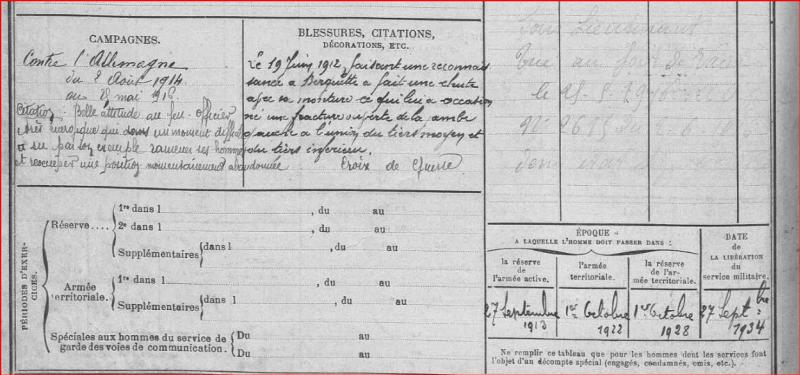 CAMPAGNES.
Contre l'Allemagne
du 2 Août 1914
au 25 mai 1916
Citation : Belle attitude au feu. Officier
très énergique qui dans un moment difficile
a su par son exemple ramener ses hommes
et réoccuper une position momentanément abandonnée
BLESSURES, CITATIONS,
DÉCORATIONS, ETC.
Le 19 Juin 1912, faisant une reconnais
sance à Berguette a fait une chute
avec sa monture ce qui lui a occasion
né une fracture ouverte de la jambe
gauche à l'union du tiers moyen et
du tiers inférieur.
Croix de Guerre
Sous Lieutenant
Tué au fort de
le 25-5-
N° 2615 du
PÉRIODES D'EXER-
CICES.
Réserve....
1re dans l , du au
2e dans l , du au
Supplémentaires
dans l , du au
Armée
territoriale.
1re dans l , du au
Supplémentaires
dans l , du au
Spéciales aux hommes du service de
garde des voies de communication.
Du au
Du au
ÉPOQUE
A LAQUELLE L'HOMME DOIT PASSER DANS :
la réserve
de
l'armée active.
l'armée
territoriale.
la réserve
de l'ar-
mée territoriale.
DATE
de
LA LIBÉRATION
du
service militaire.
27 Septembre
1913
1er Octobre
1922
1er Octobre
1928
27 Septbre
1934
Ne remplir ce tableau que pour les hommes dont les services font
l'objet d'un décompte spécial (engagés, condamnés, omis, etc.).